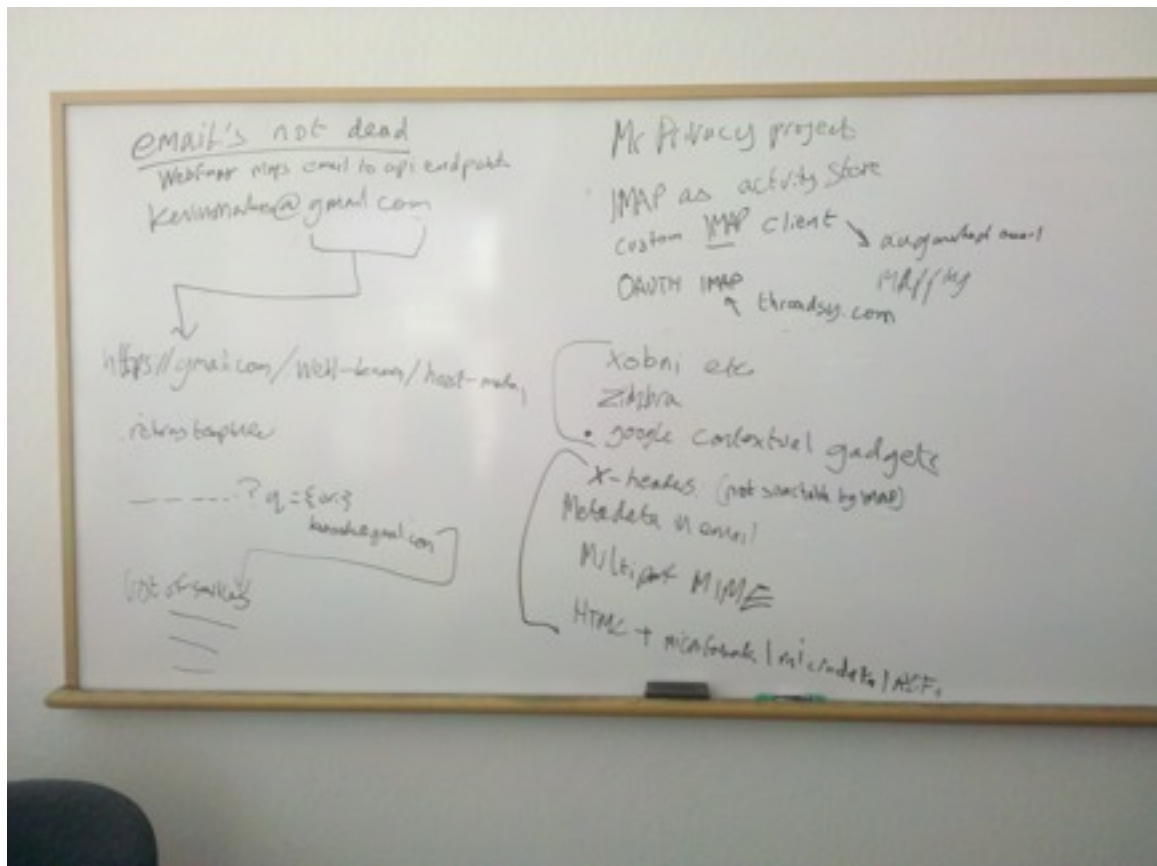 email's not dead
Webfinger maps email to api endpoints
@gmail.com
https//gmail.com/well-known/host-meta,
returns template
? q={uri}
list of services
Mr Privacy project
IMAP as activity store
custom IMAP client
augmented email
OAUTH IMAP
threadsy.com
Xobni etc
Zimbra
• google contextual gadgets
X-headers (not searchable by IMAP)
Metadata in email
Multipart MIME
HTML + microformats | microdata | RDFa